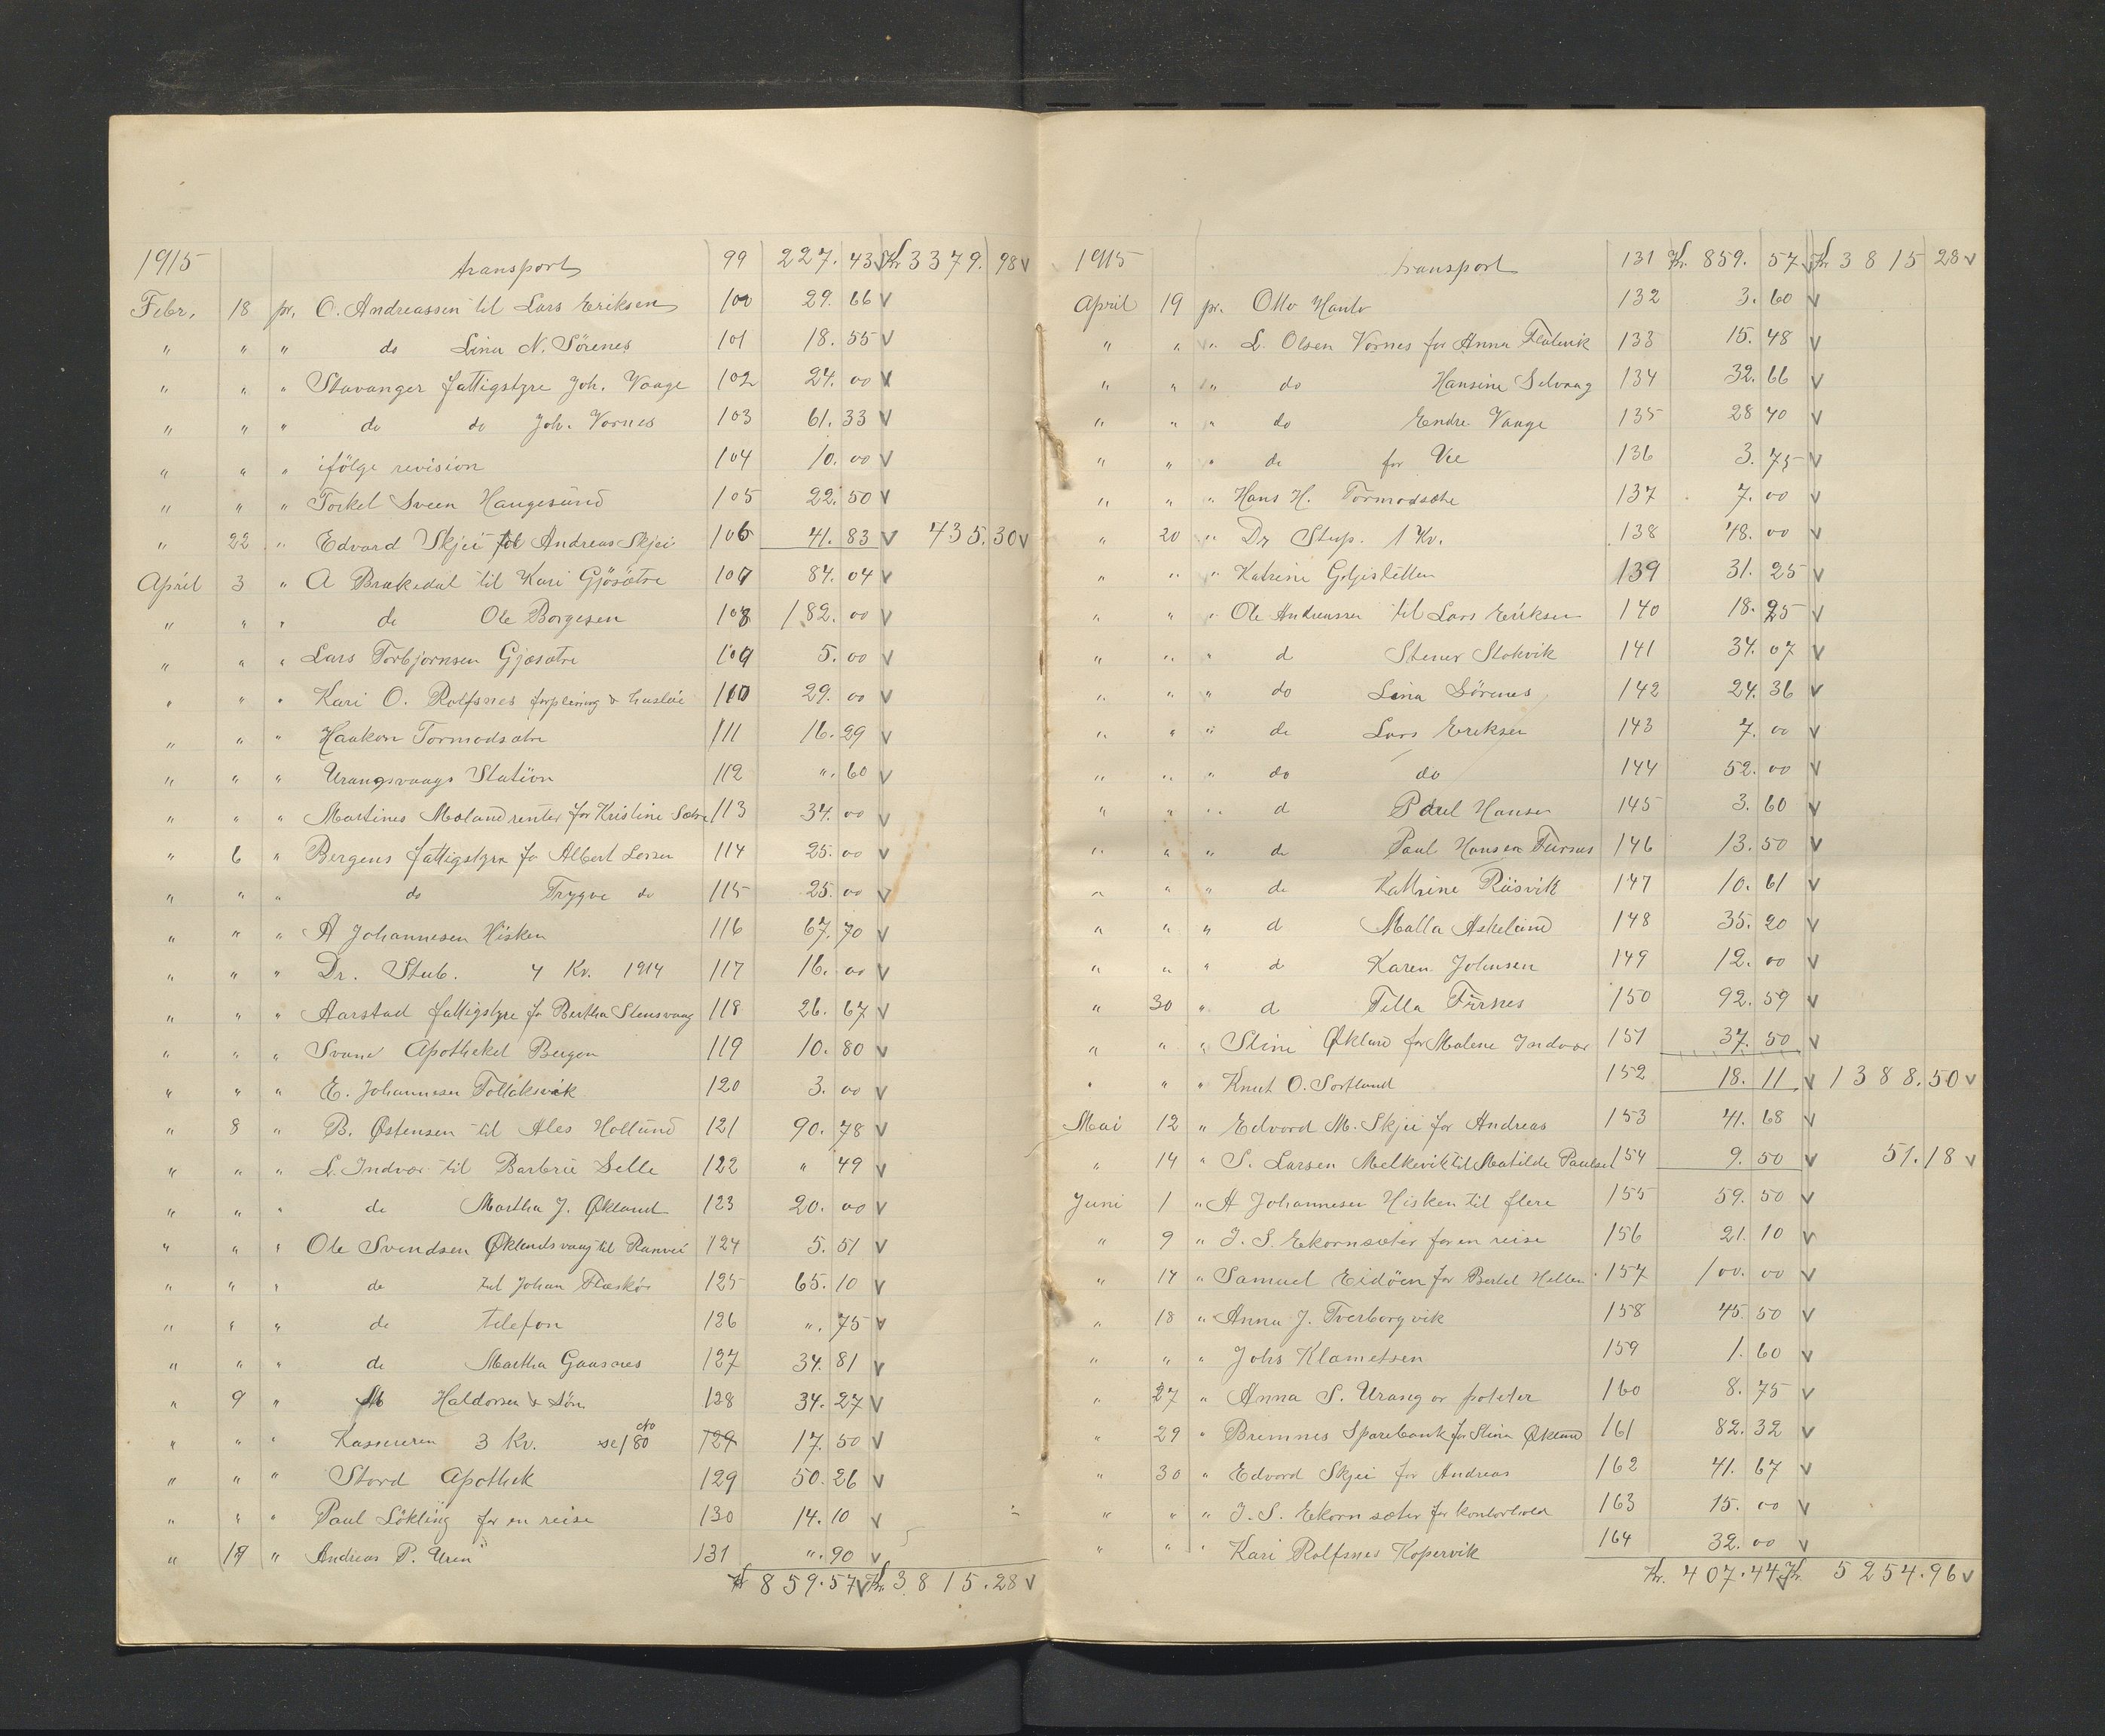 1915 transport 99 227. 43 V Kr 3379. 98 V
Febr. 18 pr. O. Andreassen til Lars Eriksen 100 29. 66 V
" " " do Lina N. Sörenes 101 18. 55 V
" " " Stavanger fattigstyre Joh. Vaage 102 24. 00 V
" " " do do Joh. Vornes 103 61. 33 V
" " " ifölge revision 104 10. 00 V
" " " Torkel Sveen Haugesund 105 22. 50 V
" 22 " Edvard Skjei til Andreas Skjei 106 41. 83 V 435. 30 V
April 3 " A Brakedal til Kari Gjösætre 107 84. 04 V
" " " do Ole Borgesen 108 182. 00 V
" " " Lars Torbjornsen Gjøsætre 109 5. 00 V
" " " Kari O. Rolfsnes forpleining & husleie 110 29. 00 V
" " " Haakon Tormodsætre 111 16. 29 V
" " " Urangsvaags Station 112 ". 60 V
" " " Martines Moland renter for Kristine Sætre 113 34. 00 V
" 6 " Bergens fattigstyre for Albert Larsen 114 25. 00 V
" " " do Trygve do 115 25. 00 V
" " " A Johannesen Hisken 116 67. 70 V
" " " Dr. Stub. 4 Kv. 1914 117 16. 00 V
" " " Aarstad fattigstyre for Bertha Stensvaag 118 26. 67 V
" " " Svane Apothekel Bergen 119 10. 80 V
" " " E. Johannesen Tollaksvik 120 3. 00 V
" 8 " B. Østensen til Ales Hollund 121 90. 78 V
" " " L. Indvær til Barbrie Selle 122 " 49 V
" " " do Martha J. Økland 123 20. 00 V
" " " Ole Svendsen Øklandsvaag til Ranvei 124 5. 51 V
" " " do til Johan Flæskør 125 65. 10 V
" " " do telefon 126 ". 75 V
" " " do Martha Gaasnes 127 34. 81 V
" 9 " Haldorsen & Sön 128 34. 27 V
" " " Kassereren 3 Kv. se No 180 129 17. 50 V
" " " Stord Apothek 129 50. 26 V
" " " Paul Lökling for en reise 130 14. 10 V
" 19 " Andreas P. Uren 131 ". 90 V
Kr 859. 57 V Kr. 3815. 28 V
1915 transport 131 Kr. 859. 57 V Kr 3815 28 V
April 19 pr. Otto Hanto 132 3. 60 V
" " " L. Olsen Vornes for Anna Flatevik 133 15. 48 V
" " " do Hansine Selvaag 134 32. 66 V
" " " do Endre Vaage 135 28 40 V
" " " do for Vee 136 3. 75 V
" " " Hans H. Tormodsætre 137 7. 00 V
" 20 " Dr Stup. 1 Kv. 138 48. 00 V
" " " Katrine Geljestellen 139 31. 25 V
" " " Ole Andreassen til Lars Eriksen 140 18. 25 V
" " " d Stener Stokvik 141 34. 07 V
" " " do Lina Sörenes 142 24. 36 V
" " " do Lars Eriksen 143 7. 00 V
" " " do do 144 52. 00 V
" " " d Paul Hansen 145 3. 60 V
" " " do Paul Hansen Fürnes 146 13. 50 V
" " " do Kathrine Riisvik 147 10. 61 V
" " " d Malla Askelund 148 35. 20 V
" " " d Karen Johnsen 149 12. 00 V
" 30 " d Tella Fürnes 150 92. 59 V
" " " Stine Økland for Malene Indvær 151 37. 50
" " " Knut O. Sortland 152 18. 11 V 1388. 50 V
Mai 12 " Edvard M. Skjei for Andreas 153 41. 68 V
" 14 " S. Larsen Melkevik til Matilde Paulsen 154 9. 50 V 51. 18 V
Juni 1 " A Johannesen Hisken til flere 155 59. 50 V
" 9 " J. S. Ekornsæter for en reise 156 21. 10 V
" 14 " Samuel Eidöen for Bertel Hellen 157 100. 00 V
" 18 " Anna J. Tverborgvik 158 45. 50 V
" " " Johs Klametsen 159 1. 60 V
" 27 " Anna S. Urang or poteter 160 8. 75 V
" 29 " Bremnes Sparebank for Stina Økland 161 82. 32 V
" 30 " Edvard Skjei for Andreas 162 41. 67 V
" " " J. S. Ekornsæter for kontorhold 163 15. 00 V
" " " Kari Rolfsnes Kopervik 164 32. 00 V
Kr. 407. 44 V Kr. 5254. 96 V